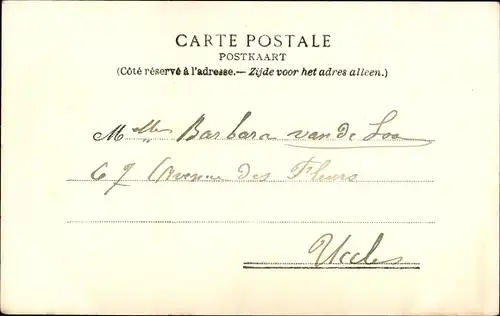 CARTE POSTALE
POSTKAART
(Côté réservé à l'adresse.— Zijde voor het adres alleen.)
Melles Barbara van de Loo
67 Avenue des Fleurs
Uccles